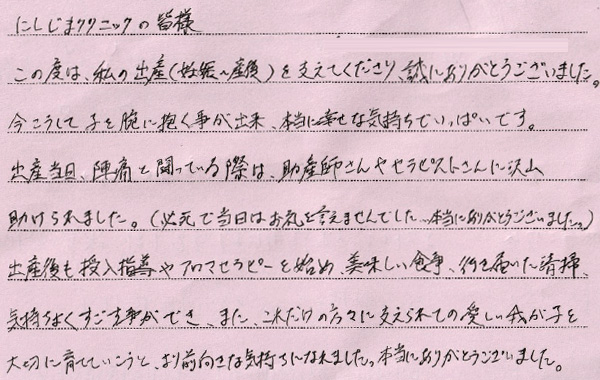 にしじまクリニックの皆様
この度は、私の出産(妊娠〜産後)を支えてくださり、誠にありがとうございました。
今こうして子を腕に抱く事が出来、本当に幸せな気持ちでいっぱいです。
出産当日、陣痛と闘っている際は、助産師さんやセラピストさんに沢山
助けられました。(必死で当日はお礼を言えませんでした…本当にありがとうございました。)
出産後も授入指導やアロマセラピーを始め、美味しい食事、行き届いた清掃、
気持ちよくすごす事ができ、また、これだけの方々に支えられての愛しい我が子を
大切に育てていこうと、より前向きな気持ちになれました。本当にありがとうございました。